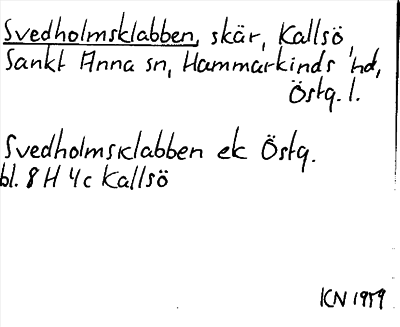 Svedholmsklabben, skär, Kallsö,
Sankt Anna sn, Hammarkinds hd,
Östg. l.
Svedholmsklabben ek Östg.
bl. 8 H 4c Kallsö
KN 1959